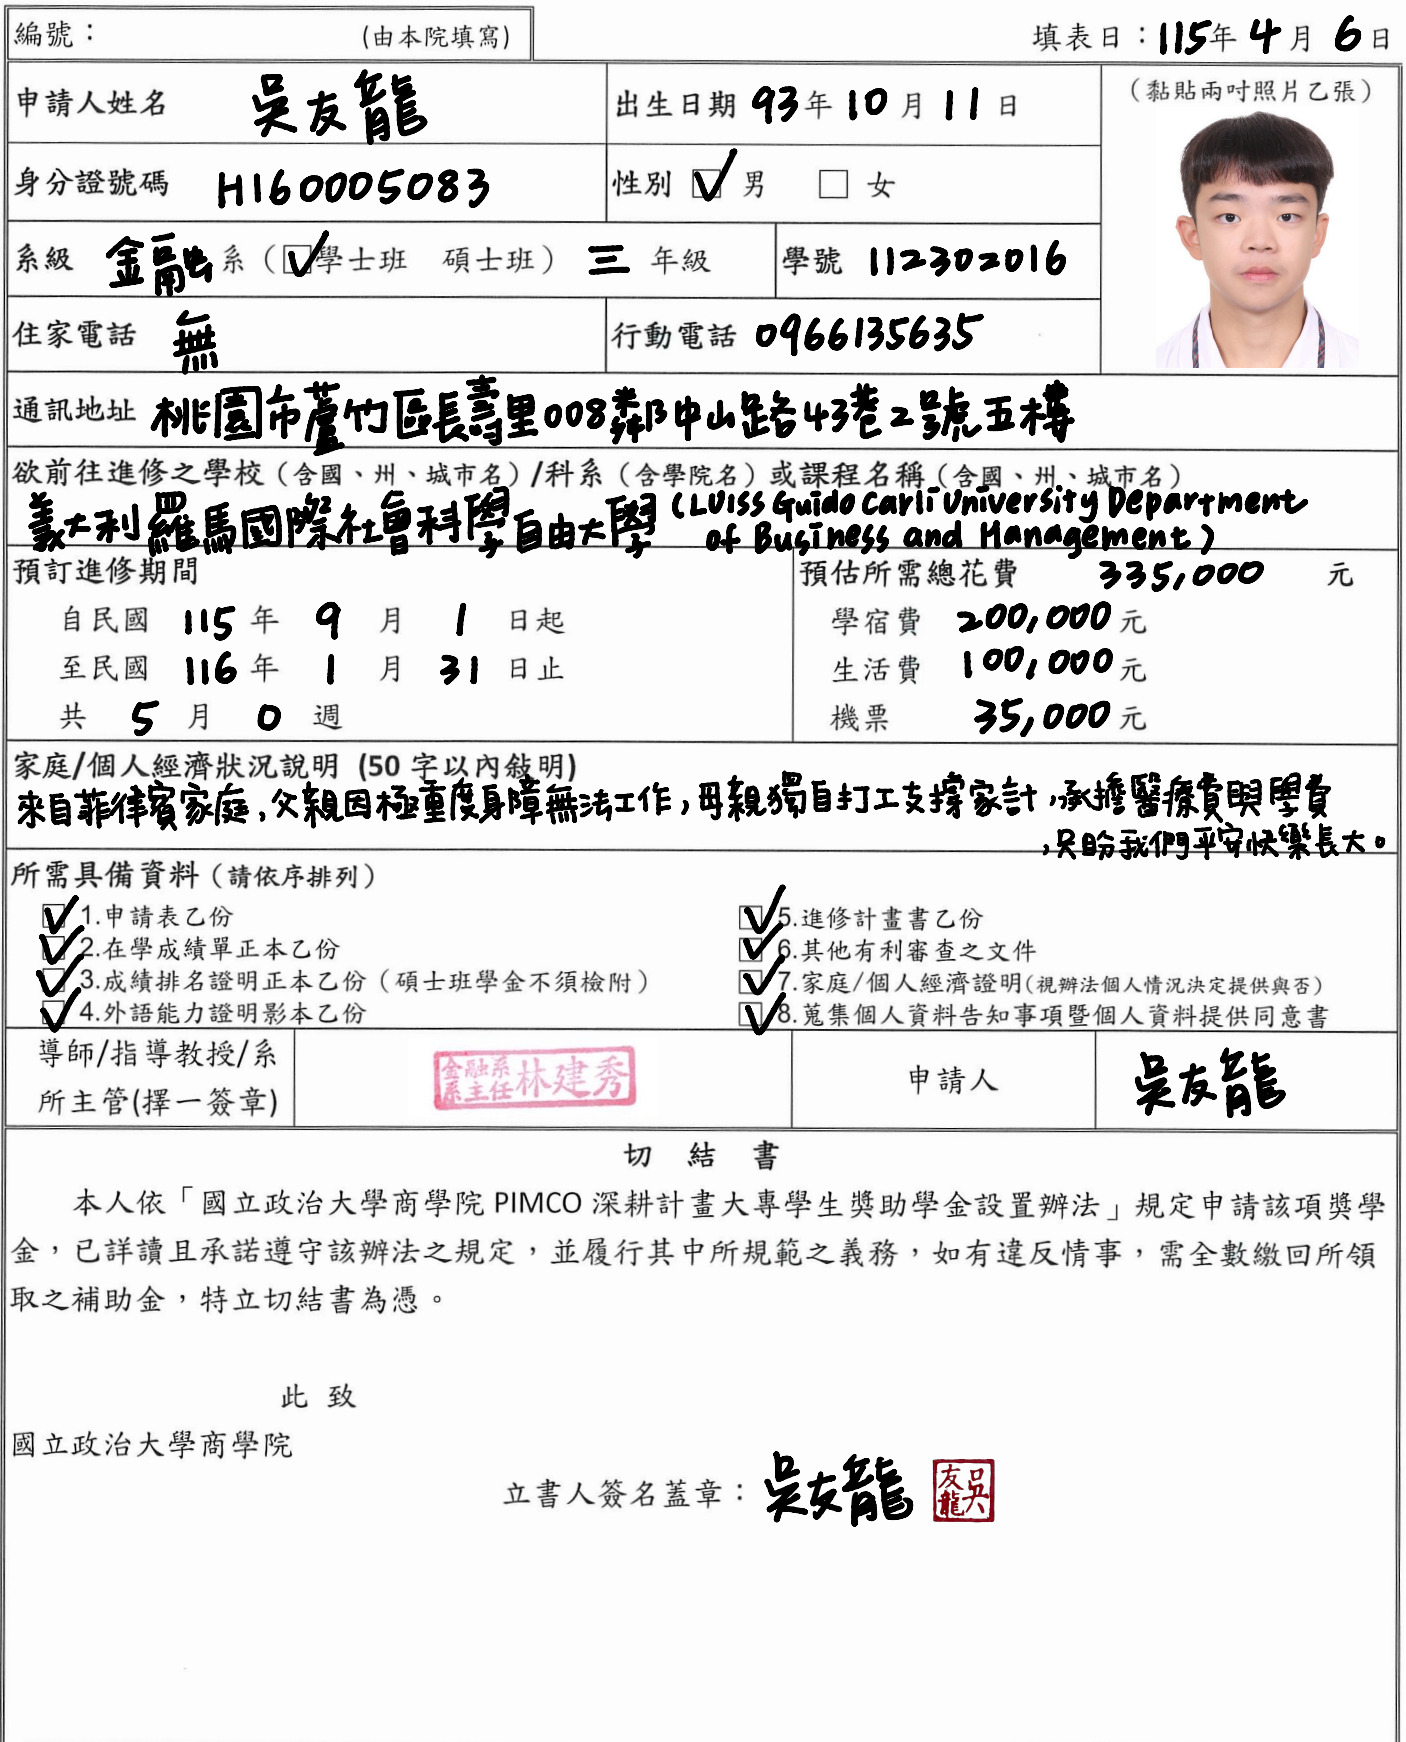 編號： (由本院填寫) 填表日：115年 4 月 6 日
申請人姓名 吳友龍 出生日期 93 年 10 月 11 日 （黏貼兩吋照片乙張）
身分證號碼 H160005083 性別 ☑ 男 □ 女
系級 金融 系（☑學士班 碩士班） 三 年級 學號 112302016
住家電話 無 行動電話 0966135635
通訊地址 桃園市蘆竹區長壽里008鄰中山路43巷2號五樓
欲前往進修之學校（含國、州、城市名）/科系（含學院名）或課程名稱（含國、州、城市名）
義大利羅馬國際社會科學自由大學（LUISS Guido Carli University Department
of Business and Management）
預訂進修期間 預估所需總花費 335,000 元
自民國 115 年 9 月 1 日起 學宿費 200,000 元
至民國 116 年 1 月 31 日止 生活費 100,000 元
共 5 月 0 週 機票 35,000 元
家庭/個人經濟狀況說明 (50 字以內敍明)
來自菲律賓家庭,父親因極重度身障無法工作,母親獨自打工支撐家計,承擔醫療費與學費
,只盼我們平安快樂長大。
所需具備資料（請依序排列）
☑ 1.申請表乙份 ☑ 5.進修計畫書乙份
☑ 2.在學成績單正本乙份 ☑ 6.其他有利審查之文件
☑ 3.成績排名證明正本乙份（碩士班學金不須檢附） ☑ 7.家庭/個人經濟證明(視辦法個人情況決定提供與否)
☑ 4.外語能力證明影本乙份 ☑ 8.蒐集個人資料告知事項暨個人資料提供同意書
導師/指導教授/系
所主管(擇一簽章) 金融系系主任林建秀 申請人 吳友龍
切 結 書
本人依「國立政治大學商學院 PIMCO 深耕計畫大專學生獎助學金設置辦法」規定申請該項獎學
金，已詳讀且承諾遵守該辦法之規定，並履行其中所規範之義務，如有違反情事，需全數繳回所領
取之補助金，特立切結書為憑。
此 致
國立政治大學商學院
立書人簽名蓋章： 吳友龍 吳友龍